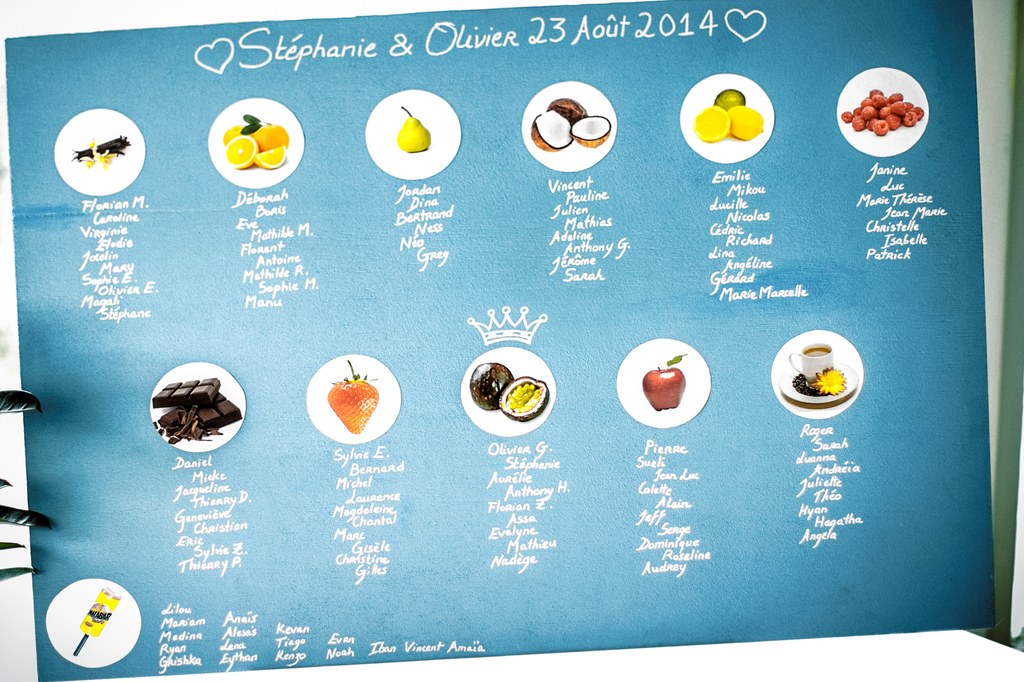 Stéphanie & Olivier 23 Août 2014
Florian M.
Caroline
Virginie
Elodie
Jocelin
Mary
Sophie E.
Olivier E.
Magali
Stéphane
Déborah
Boris
Eve
Mathilde M.
Florent
Antoine
Mathilde R.
Sophie M.
Manu
Jordan
Dina
Bertrand
Ness
Néo
Greg
Vincent
Pauline
Julien
Mathias
Adeline
Anthony G.
Jérôme
Sarah
Emilie
Mikou
Lucille
Nicolas
Cédric
Richard
Lina
Angéline
Gérard
Marie Marcelle
Janine
Luc
Marie Thérèse
Jean Marie
Christelle
Isabelle
Patrick
Daniel
Mieke
Jacqueline
Thierry D.
Geneviève
Christian
Eric
Sylvie Z.
Thierry P.
Sylvie E.
Bernard
Michel
Laurence
Magdeleine
Chantal
Marc
Gisèle
Christine
Gilles
Olivier G.
Stéphanie
Aurélie
Anthony H.
Florian Z.
Assa
Evelyne
Mathieu
Nadège
Pierre
Sueli
Jean Luc
Colette
Alain
Jeff
Serge
Dominique
Roseline
Audrey
Roger
Sarah
Luanna
Andréia
Juliette
Théo
Hyan
Hagatha
Angela
MALABAR
Lilou
Mariam Anaïs
Medina Alexis Kevan
Ryan Lena Tiago Evan
Grishka Eythan Kenzo Noah Iban Vincent Amaïa